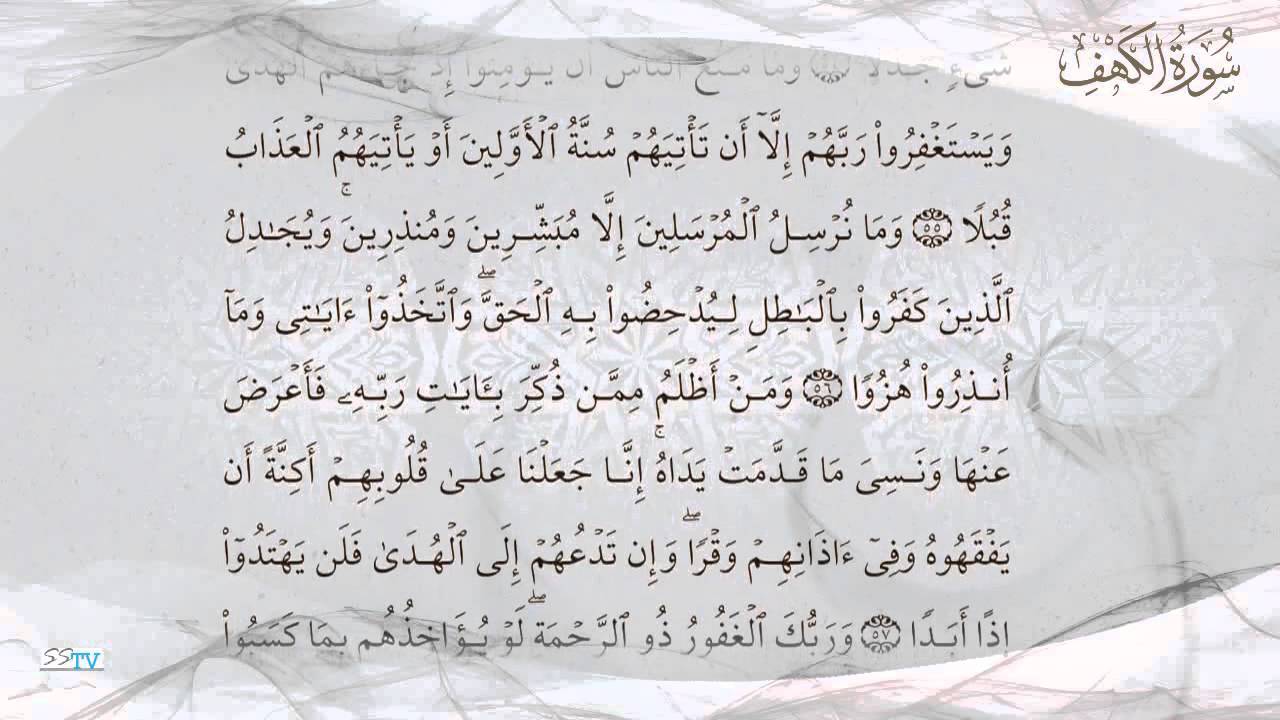 سُورَةُ الْكَهْفِ
شَىْءٍ جَدَلًا ٥٤ وَمَا مَنَعَ النَّاسَ أَن يُؤْمِنُوا إِذْ جَاءَهُمُ الْهُدَىٰ
وَيَسْتَغْفِرُوا۟ رَبَّهُمْ إِلَّآ أَن تَأْتِيَهُمْ سُنَّةُ ٱلْأَوَّلِينَ أَوْ يَأْتِيَهُمُ ٱلْعَذَابُ
قُبُلًا ٥٥ وَمَا نُرْسِلُ ٱلْمُرْسَلِينَ إِلَّا مُبَشِّرِينَ وَمُنذِرِينَ ۚ وَيُجَـٰدِلُ
ٱلَّذِينَ كَفَرُوا۟ بِٱلْبَـٰطِلِ لِيُدْحِضُوا۟ بِهِ ٱلْحَقَّ ۖ وَٱتَّخَذُوٓا۟ ءَايَـٰتِى وَمَآ
أُنذِرُوا۟ هُزُوًا ٥٦ وَمَنْ أَظْلَمُ مِمَّن ذُكِّرَ بِـَٔايَـٰتِ رَبِّهِۦ فَأَعْرَضَ
عَنْهَا وَنَسِىَ مَا قَدَّمَتْ يَدَاهُ ۚ إِنَّا جَعَلْنَا عَلَىٰ قُلُوبِهِمْ أَكِنَّةً أَن
يَفْقَهُوهُ وَفِىٓ ءَاذَانِهِمْ وَقْرًا ۖ وَإِن تَدْعُهُمْ إِلَى ٱلْهُدَىٰ فَلَن يَهْتَدُوٓا۟
إِذًا أَبَدًا ٥٧ وَرَبُّكَ ٱلْغَفُورُ ذُو ٱلرَّحْمَةِ ۖ لَوْ يُؤَاخِذُهُم بِمَا كَسَبُوا۟
SSTV